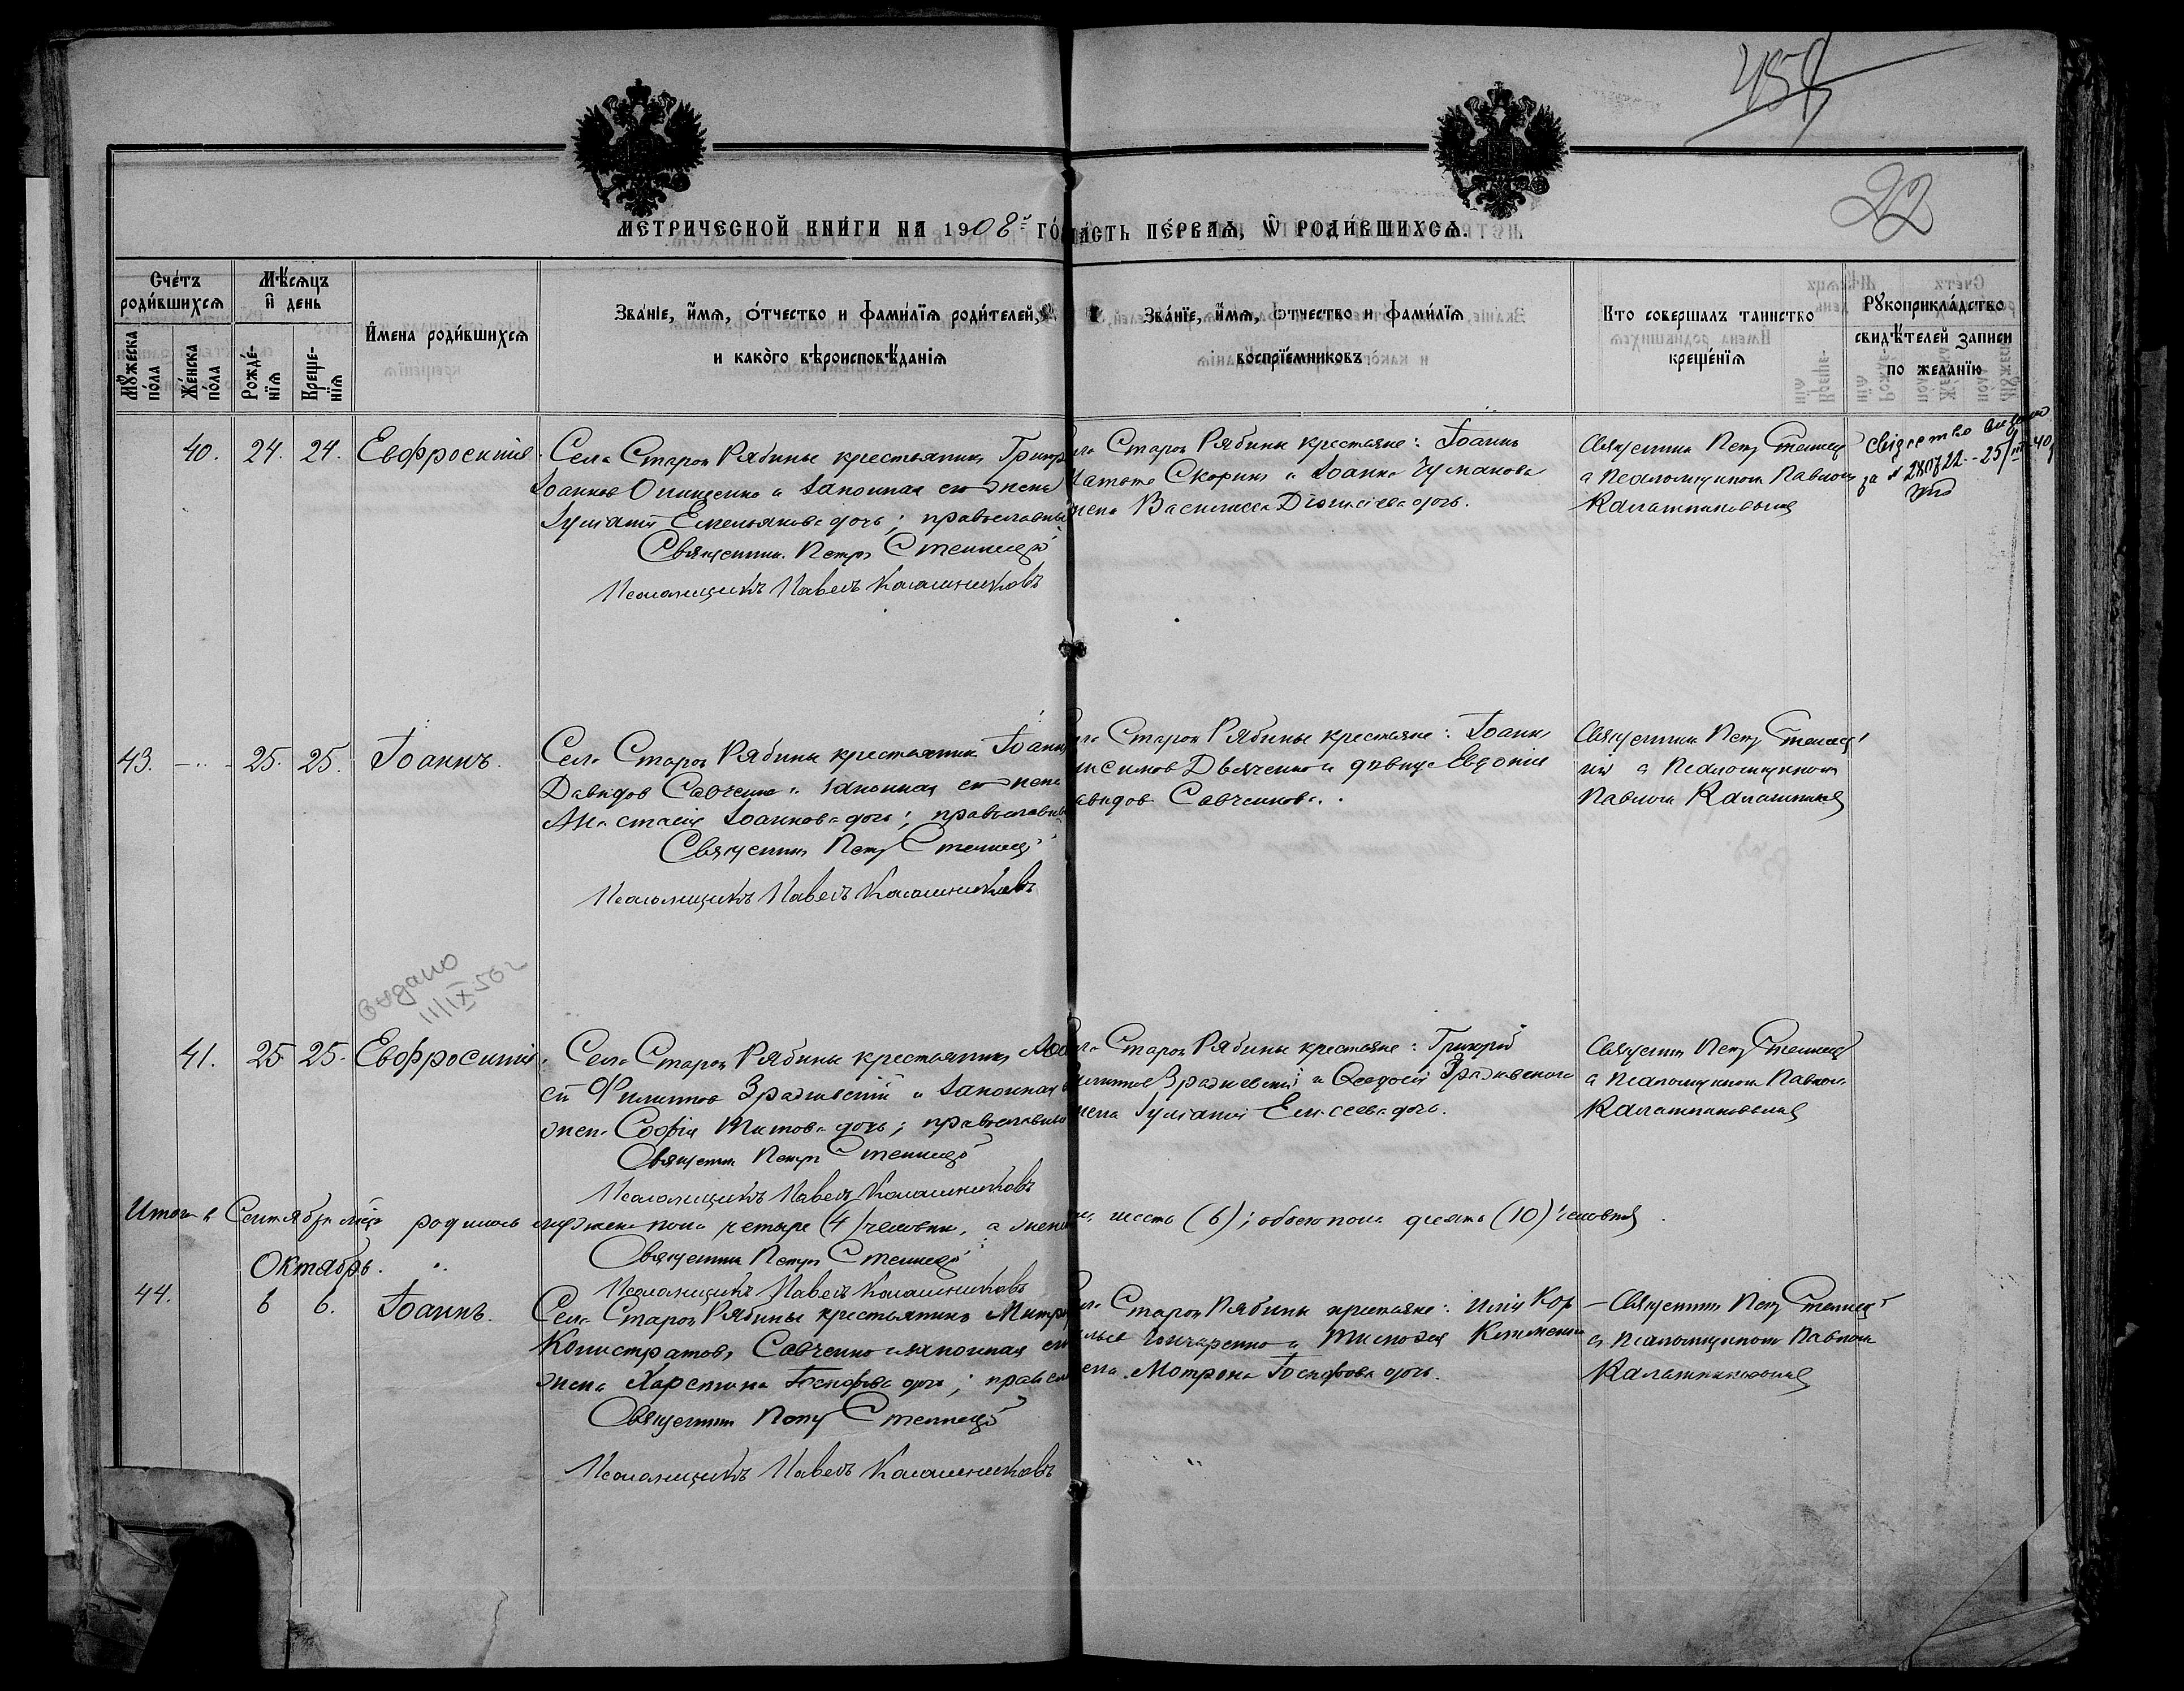 454
22
МЕТРИЧЕСКОЙ КНИ́ГИ НА 1908й ГО́
ЧА́СТЬ ПЕ́РВАѦ, Ѽ РОДИ́ВШИХСѦ.
Сче́тъ родившихсѧ
Мѣ́сѧцъ и҆ день
И҆мена роди́вшихсѧ
Зва́нїе, и҆́мѧ, о́тчество и фами́лїѧ роди́телей,
и како́го вѣроисповѣ́данїѧ
Зва́нїе, и҆́мѧ, ѻ́тчество и фами́лїѧ
воспрїе́мниковъ
Кто совершалъ таинство
креще́нїѧ
Рꙋкоприкла́дство
свидѣ́телей записи
по желанїю
Мꙋ́жеска по́ла
Же́нска по́ла
Рожде́-нїѧ
Креще-нїѧ
40. 24. 24. Евфросинія. Села Старой Рябины крестьянинъ Григор
Іоанновъ Онищенко и законная его жена
Іуліанія Емельянова дочь; православны
Священникъ Петръ Стеллецкій
Псаломщикъ Павелъ Калашниковъ
Старой Рябины крестьяне: Іоаннъ
Скоринъ и Іоанна Чумакова
жена Василисса Діонисіева дочь.
Священникъ Петръ Стеллецкій
съ Псаломщикомъ Павломъ
Калашниковымъ
Свідоцтво видано
за № 280722 - 25/III 40 р
43. - .. - 25. 25. Іоаннъ. Села Старой Рябины крестьянинъ Іоаннъ
Давидовъ Савченко и законная его жена
Анастасія Іоаннова дочь; православны
Священникъ Петръ Стеллецкій
Псаломщикъ Павелъ Калашниковъ
Старой Рябины крестьяне: Іоаннъ
Дьяченко и дѣвица Евдокія
Савченкова.
Священникъ Петръ Стеллец
кій съ Псаломщикомъ
Павломъ Калашниковымъ
выдано
11/IX 50 г
41. 25 25. Евфросинія. Села Старой Рябины крестьянинъ
Филипповъ Зражевскій и законная
жена Софія Титова дочь; православны
Священникъ Петръ Стеллецкій
Псаломщикъ Павелъ Калашниковъ
Старой Рябины крестьяне: Григорій
Филипповъ Зражевскій и Ѳеодосія Зражевскаго
жена Іуліанія Елисеева дочь.
Священникъ Петръ Стеллецкій
съ Псаломщикомъ Павломъ
Калашниковымъ
Итого въ Сентябрѣ мѣсяцѣ родилось мужеска пола четыре (4) человѣка, а женск
шесть (6); обоего пола десять (10) человѣкъ.
Священникъ Петръ Стеллецкій
Псаломщикъ Павелъ Калашниковъ
Октябрь.
44. 6 6. Іоаннъ. Села Старой Рябины крестьянинъ Митро
Каллистратовъ Савченко и законная его
жена Харитина Іосифова дочь; правосл
Священникъ Петръ Стеллецкій
Псаломщикъ Павелъ Калашниковъ
Старой Рябины крестьяне: Илія Кор
Гончаренко и Тимоѳея
жена Мотрона Іосифова дочь.
Священникъ Петръ Стеллецкій
съ Псаломщикомъ Павломъ
Калашниковымъ